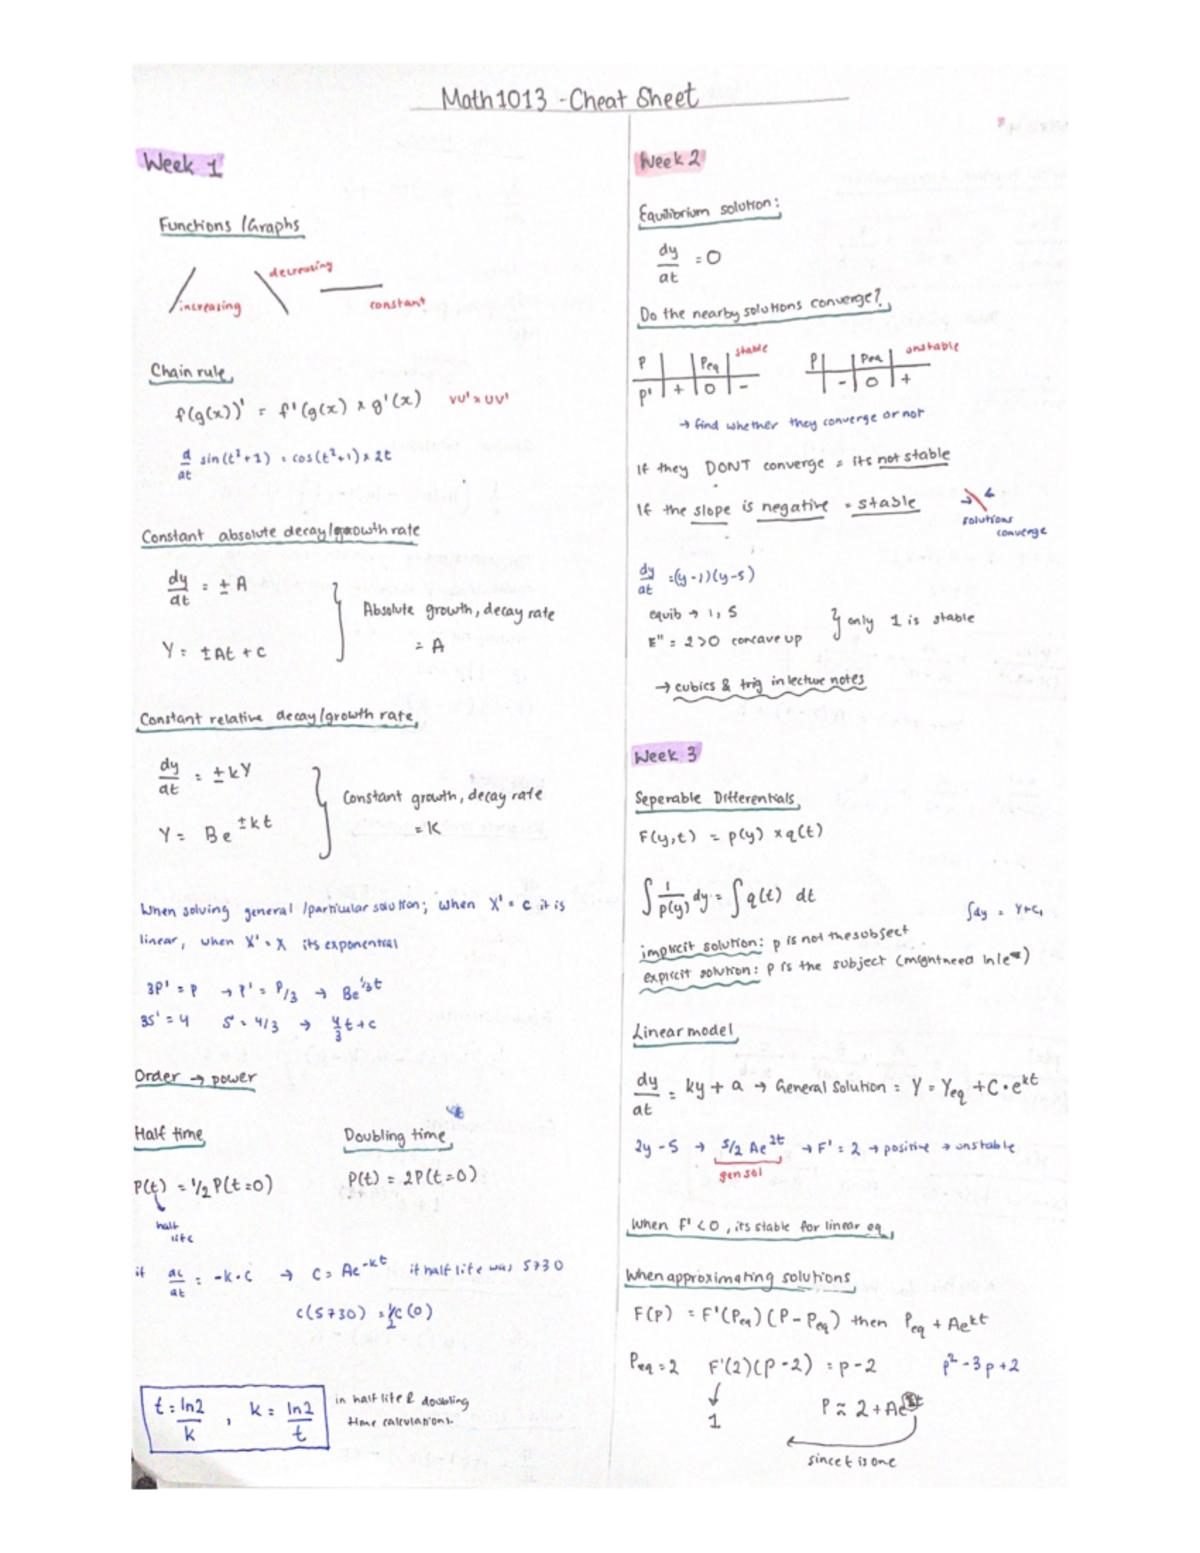 Math1013 - Cheat Sheet
Week 1
Functions /Graphs
increasing
decreasing
constant
Chain rule
f(g(x))' = f'(g(x) × g'(x)
vu' × uv'
d/dt sin(t²+1) = cos(t²+1) × 2t
Constant absolute decay/growth rate
dy/dt = ± A
Y = ±At + c
Absolute growth, decay rate
= A
Constant relative decay/growth rate
dy/dt = ±kY
Y = Be^±kt
Constant growth, decay rate
= K
When solving general /particular solution; when X' = c it is
linear, when X' = X its exponential
3P' = P → P' = P/3 → Be^1/3t
3S' = 4 S' = 4/3 → 4/3 t + c
Order → power
Half time
Doubling time
P(t) = 1/2 P(t=0)
P(t) = 2P(t=0)
half
life
if dc/dt = -k·C → C = Ae^-kt if half life was 5730
C(5730) = 1/2 C(0)
t = ln2/k , k = ln2/t
in half life & doubling
time calculations.
Week 2
Equilibrium solution:
dy/dt = 0
Do the nearby solutions converge?
P Peq stable
P' + 0 -
P Peq unstable
- 0 +
→ find whether they converge or not
If they DONT converge = its not stable
If the slope is negative = stable
solutions
converge
dy/dt = (y-1)(y-5)
equib → 1, 5
E" = 2>0 concave up
only 1 is stable
→ cubics & trig in lecture notes
Week 3
Seperable Differentials
F(y,t) = p(y) × q(t)
∫ 1/p(y) dy = ∫ q(t) dt
∫dy = Y+C₁
implicit solution: p is not the subject
explicit solution: p is the subject (might need ln/e)
Linear model
dy/dt = ky + a → General Solution = Y = Yeq + C·e^kt
2y - 5 → 5/2 Ae^2t → F' = 2 → positive → unstable
gen sol
When F' < 0, its stable for linear eq.
When approximating solutions
F(P) = F'(Peq)(P - Peq) then Peq + Ae^kt
Peq = 2 F'(2)(P - 2) = P - 2 p² - 3p + 2
1
P ≈ 2 + Ae
since t is one